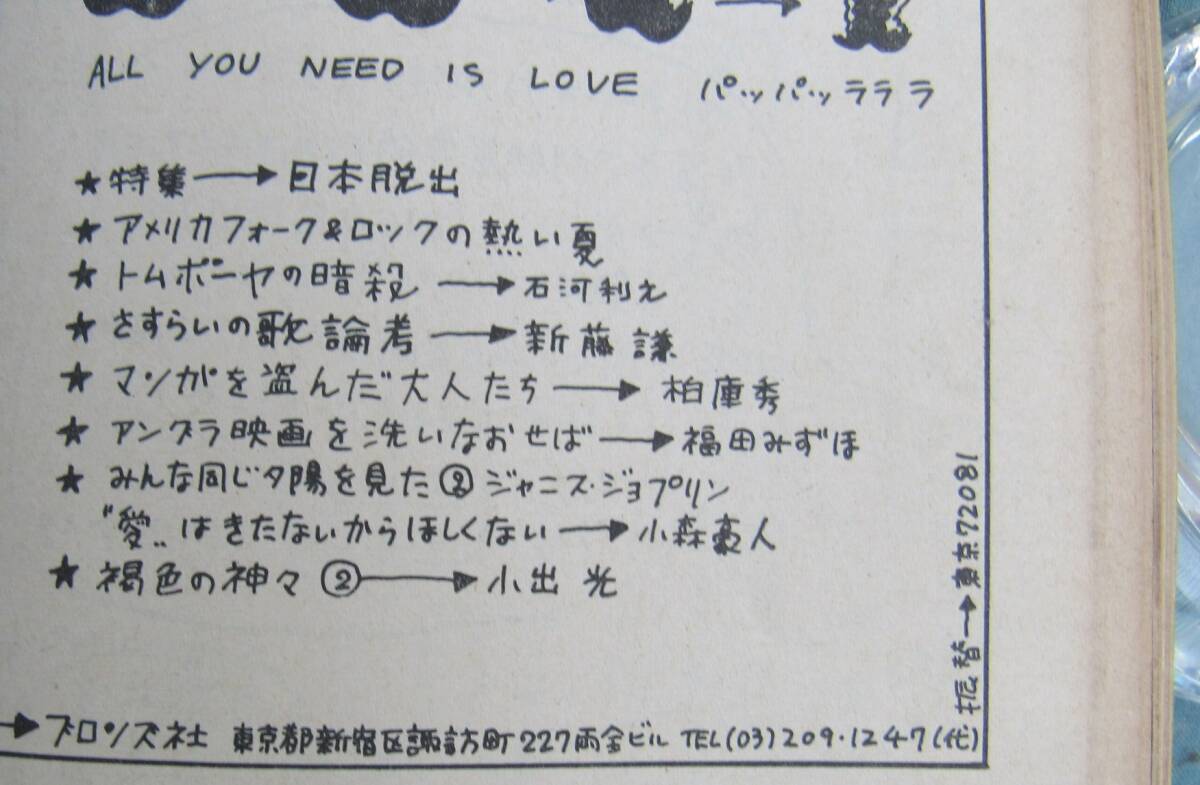 ALL YOU NEED IS LOVE パッパッラララ
★特集→日本脱出
★アメリカフォーク&ロックの熱い夏
★トムボーヤの暗殺→石河利え
★さすらいの歌論考→新藤謙
★マンガを盗んだ大人たち→柏庫秀
★アングラ映画を洗いなおせば→福田みずほ
★みんな同じ夕陽を見た②ジャニス・ジョプリン
"愛"はきたないからほしくない→小森豪人
★褐色の神々②→小出光
→ブロンズ社 東京都新宿区諏訪町227両全ビル TEL(03)209・1247(代)
振替→東京72081